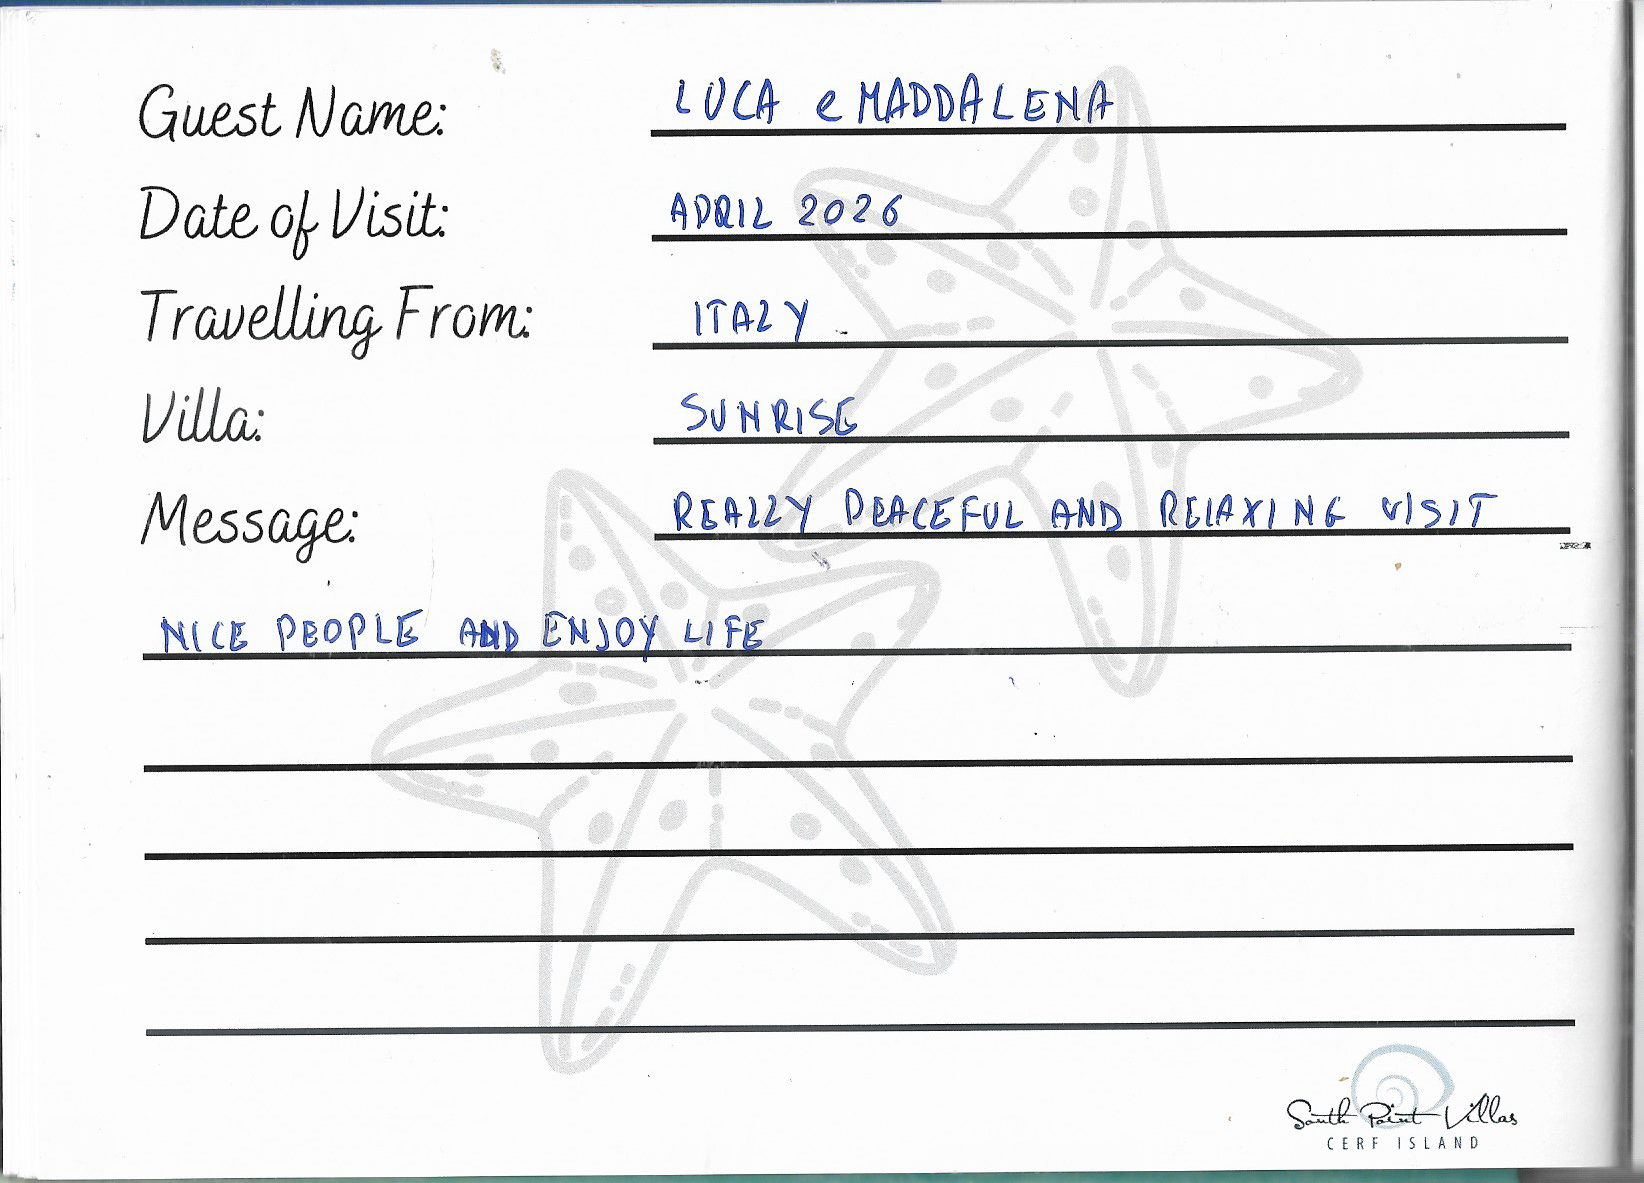 Guest Name: LUCA e MADDALENA
Date of Visit: APRIL 2026
Travelling From: ITALY
Villa: SUNRISE
Message: REALLY PEACEFUL AND RELAXING VISIT
NICE PEOPLE AND ENJOY LIFE
South Point Villas
CERF ISLAND